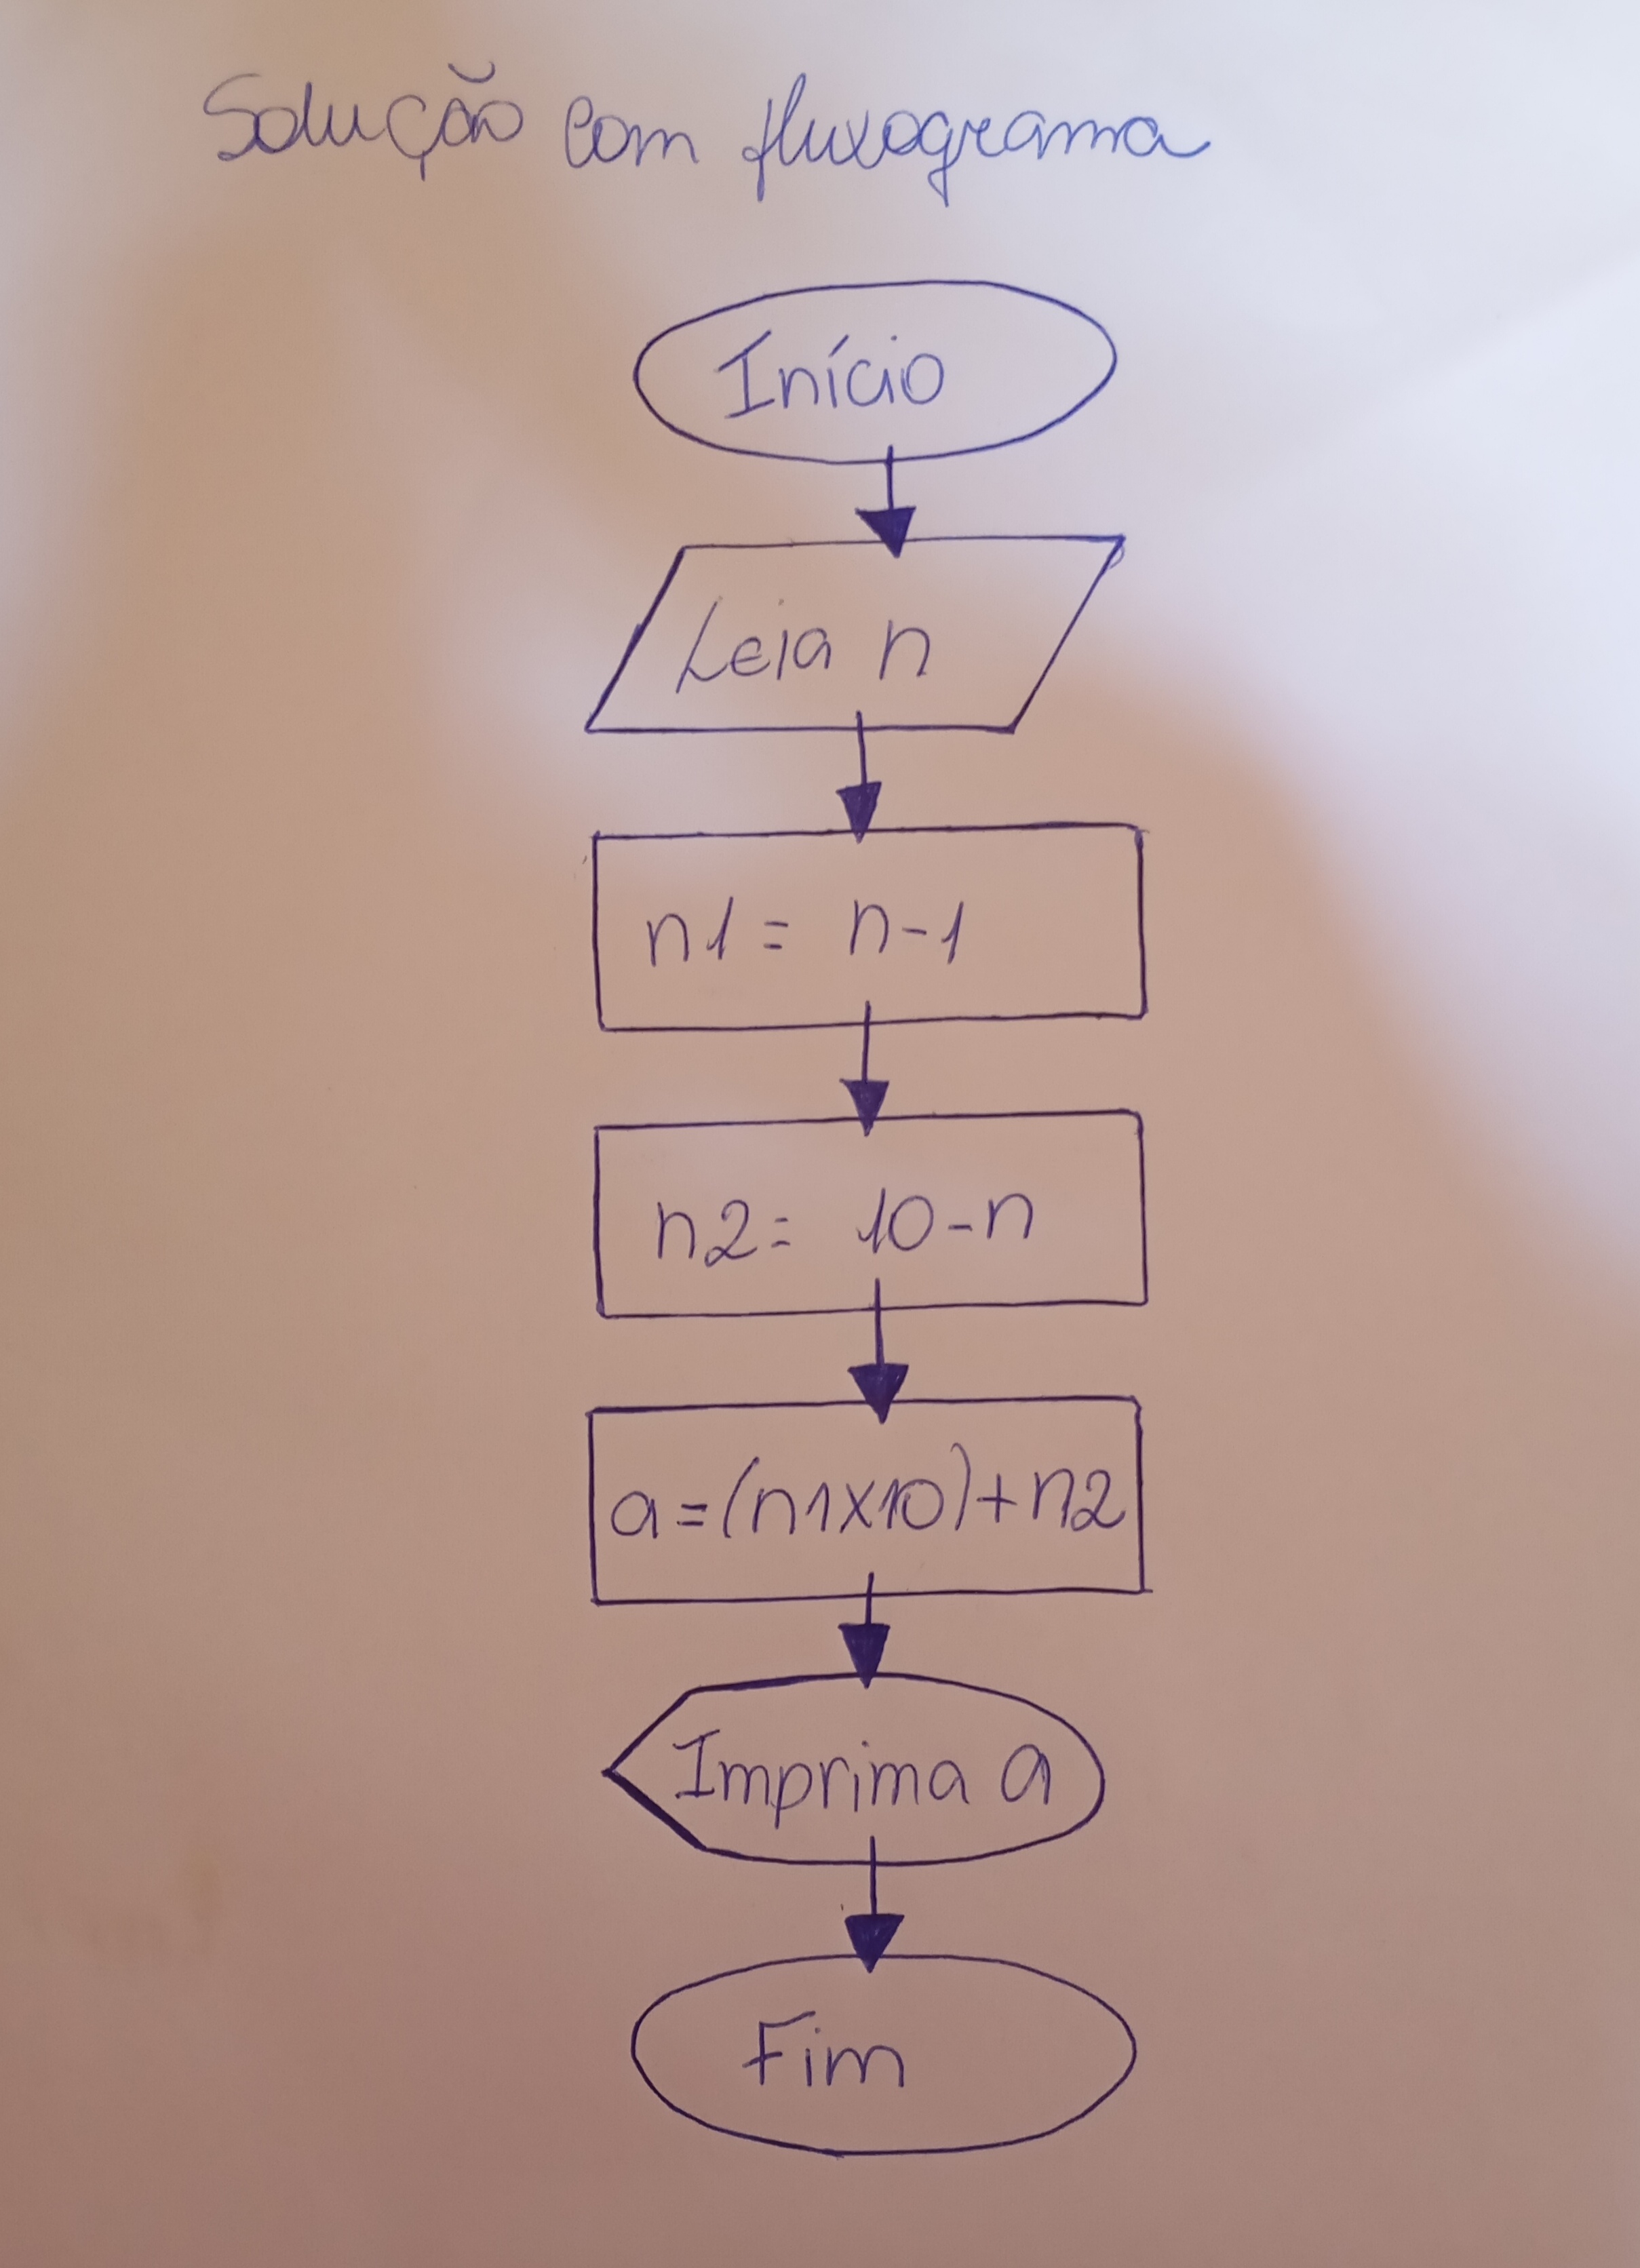 Solução com fluxograma
Início
Leia n
n1 = n-1
n2 = 10-n
a = (n1x10)+n2
Imprima a
Fim